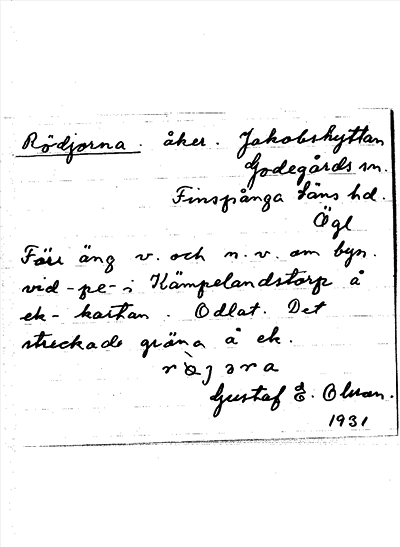 Rödjorna. åker. Jakobshyttan
Godegårds sn.
Finspånga läns hd.
Ögl
Förr äng v. och n. v. om byn.
vid -pe- i Kämpelandstorp å
ek-kartan. Odlat. Det
streckade gräna å ek.
Gustaf E. Olsson.
1931